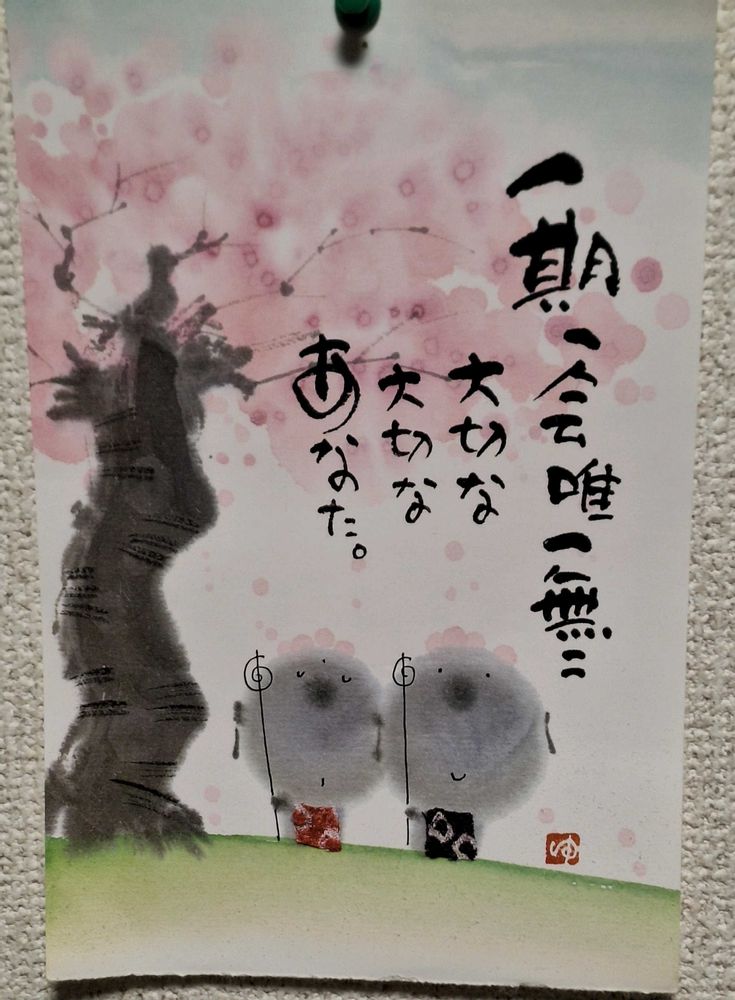 一期一会唯一無二
大切な
大切な
あなた。
ゆ